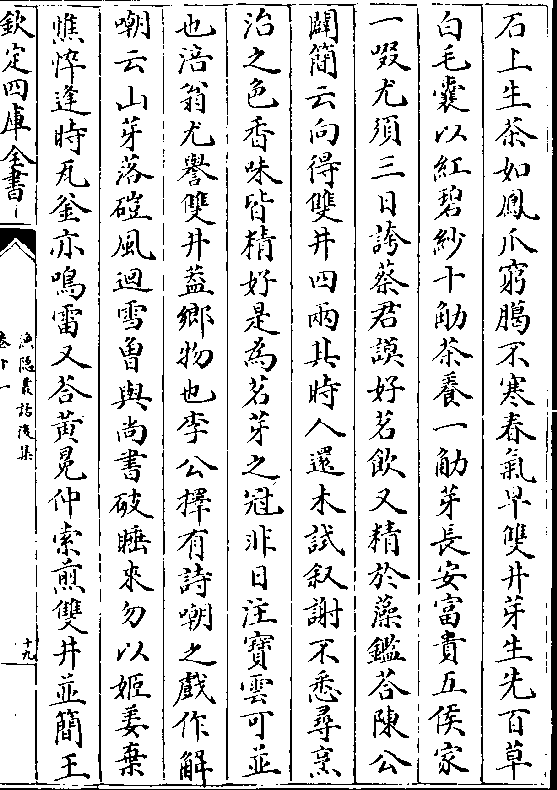 石上生茶如鳳爪窮臈不寒春氣早雙井芽生先百草
白毛囊以紅碧紗十觔茶養一觔芽長安富貴五侯家
一啜尤須三日誇蔡君謨好茗飲又精於藻鑑答陳公
闢簡云向得雙井四兩其時人還未試叙謝不悉尋烹
治之色香味皆精好是為茗芽之冠非日注寶雲可並
也涪翁尤譽雙井葢鄉物也李公擇有詩嘲之戲作解
嘲云山芽落磑風迴雪曽與尚書破睡來勿以姬姜棄
憔悴逢時瓦釜亦鳴雷又答黄晃仲索煎雙井並簡王
欽定四庫全書
漁隠叢話後集
卷十一
十九